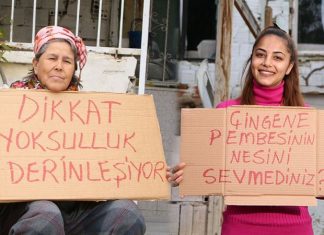 DİKKAT
YOKSULLUK
DERİNLEŞİYOR
ÇİNGENE
PEMBESİNİN
NESİNİ
SEVMEDİNİZ?